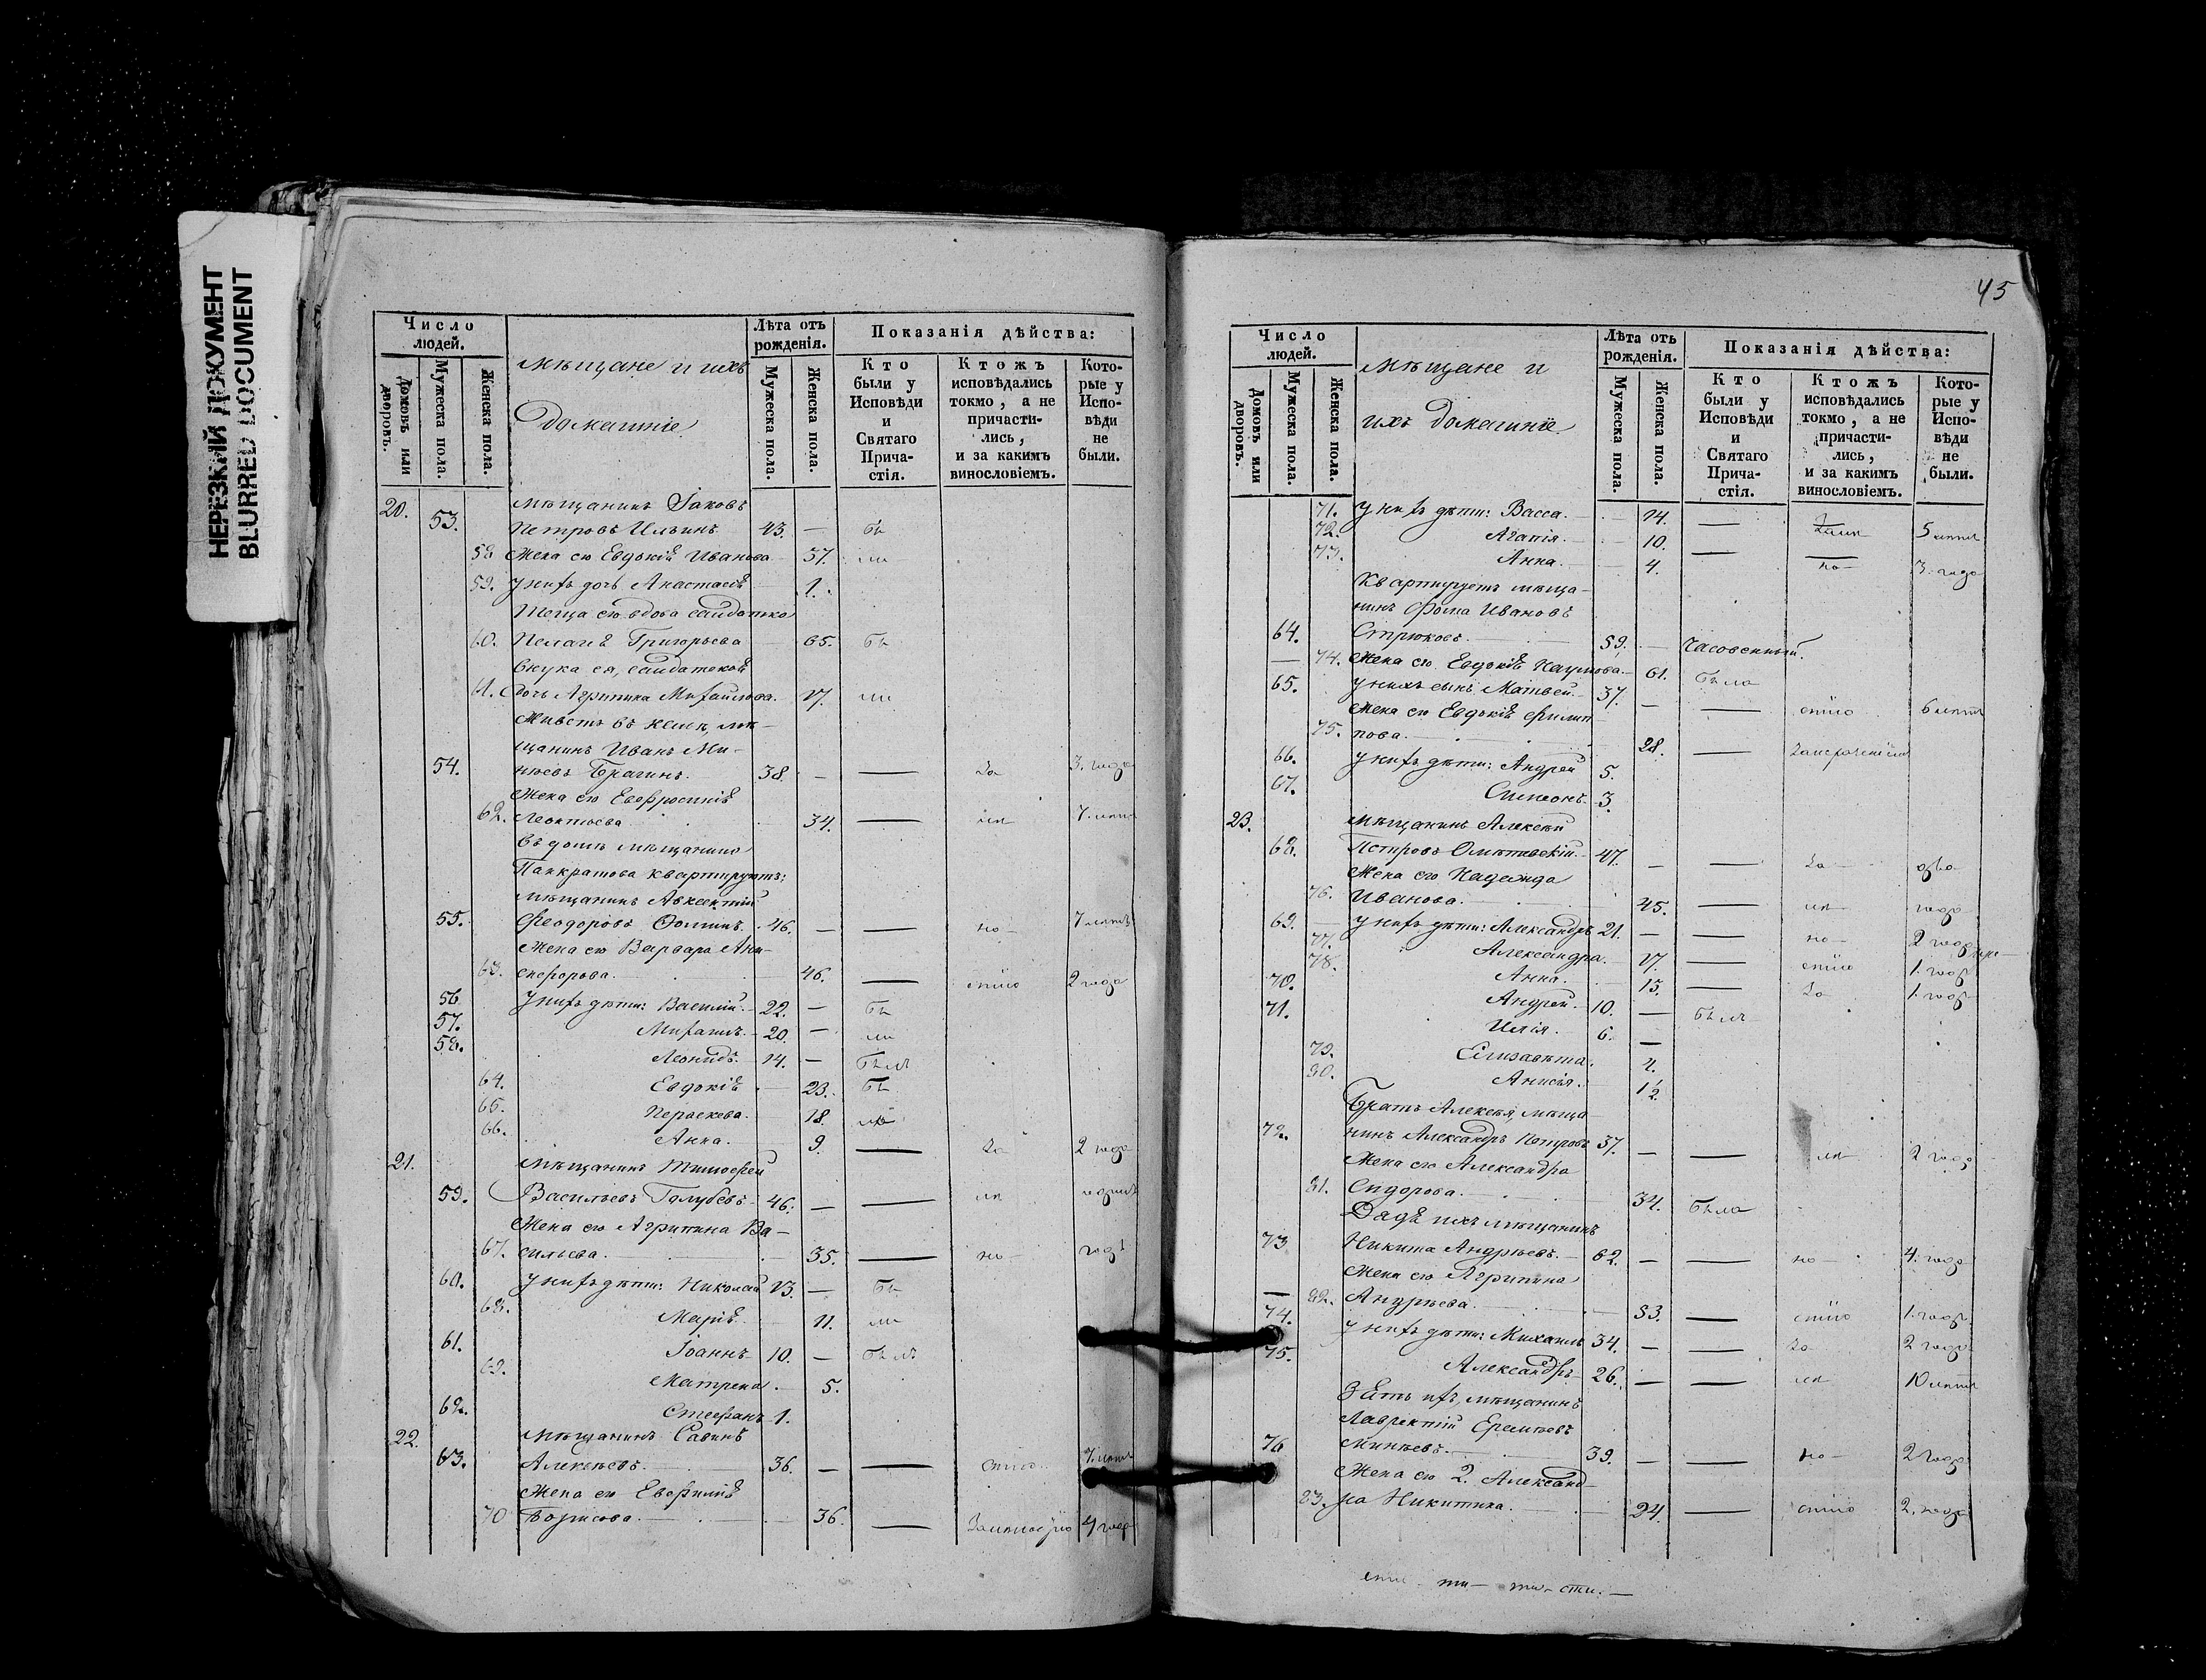 НЕРЕЗКИЙ ДОКУМЕНТ
BLURRED DOCUMENT
Число людей.
Домовъ или дворовъ.
Мужеска пола.
Женска пола.
мѣщане и ихъ
домашніе
Лѣта отъ рожденія.
Мужеска пола.
Женска пола.
Показанія дѣйства:
Кто были у Исповѣди и Святаго Причастія.
Ктожъ исповѣдались токмо, а не причастились, и за какимъ винословіемъ.
Которые у Исповѣди не были.
20. мѣщанинъ Іаковъ
53. Петровъ Ильинъ 43. — бы
58 Жена его Евдокія Иванова 37. ли
59. У нихъ дочь Анастасія 1.
Теща его вдова солдатка
60. Пелагія Григорьева 65. бы
Внука ея, солдатская
61. дочь Агрипина Михайлова. 17. ли
Живетъ въ ней, мѣ-
щанинъ Иванъ Ми-
54. нѣевъ Брагинъ. 38. — — за 3. года
Жена его Евфросинія
62. Леонтьева 34. — 7. лѣтъ
въ домѣ мѣщанина
Панкратова квартируютъ:
мѣщанинъ Авксентій
55. Феодоровъ Фоминъ. 46. — — но 7 лѣтъ
Жена его Варвара Ани-
63. сифорова. 46. — стію 2 года
56 У нихъ дѣти: Василій 22. — бы
57. Михаилъ 20. — ли
58. Леонидъ 14. — былъ
64. Евдокія 23. бы
65. Пераскева. 18. ли
66. Анна. 9. — за 2 года
21. Мѣщанинъ Тимофей
59. Васильевъ Голубевъ 46. — —
Жена его Агрипина Ва-
67. сильева. 35. — но годъ
60. У нихъ дѣти: Николай 13. — бы
68. Марія 11. ли
61. Іоаннъ 10. — былъ
69. Матрена. 5.
62. Стефанъ 1.
22. мѣщанинъ Савинъ
63. Алексѣевъ. 36. — — стію. 7. лѣтъ
Жена его Евфимія
70 Борисова. 36. — 4 года
45
Число людей.
Домовъ или дворовъ.
Мужеска пола.
Женска пола.
мѣщане и
ихъ домашніе
Лѣта отъ рожденія.
Мужеска пола.
Женска пола.
Показанія дѣйства:
Кто были у Исповѣди и Святаго Причастія.
Ктожъ исповѣдались токмо, а не причастились, и за какимъ винословіемъ.
Которые у Исповѣди не были.
71. У нихъ дѣти: Васса. 14. — 5 лѣтъ
72. Агапія. 10. —
73. Анна. 4. — но 3. года
Квартируетъ мѣща-
нинъ Фома Ивановъ
64. Стрюковъ. 59. — Часовенный.
— 74. Жена его Евдокія Наумова. 61. была
65. У нихъ сынъ Матвей. 37. — — стію 6 лѣтъ
Жена его Евдокія Филип
75. пова. 28. —
66. У нихъ дѣти: Андрей 5.
67. Симеонъ. 3.
23. мѣщанинъ Алексѣй
68. Петровъ 47. — — за два
Жена его Надежда
76. Иванова. 45. — года
69. У нихъ дѣти: Александръ 21. — — но 2 года
77. Александра. 17. — стію 1. годъ
78. Анна. 15. — за 1. годъ
70. Андрей. 10. — былъ
71. Илія. 6. —
79. Елизавета. 4.
80. Анисія. 1/2
Братъ Алексѣя, мѣща-
72. нинъ Александръ Петровъ 37. — — 2 года
Жена его Александра
81. Сидорова. 34. была
Дядя ихъ мѣщанинъ
73 Никита Андрѣевъ. 62. — — но 4. года
Жена его Агрипина
— 82. Андрѣева. 53. — стію 1. годъ.
74. У нихъ дѣти: Михаилъ 34. — — за 2 года
75. Александръ 26. — — 10 лѣтъ
Зять ихъ, мѣщанинъ
Лаврентій Еремѣевъ
76 Минѣевъ. 39. — — но 2 года
Жена его 2. Александ-
83. ра Никитина. 24. — стію 2. года